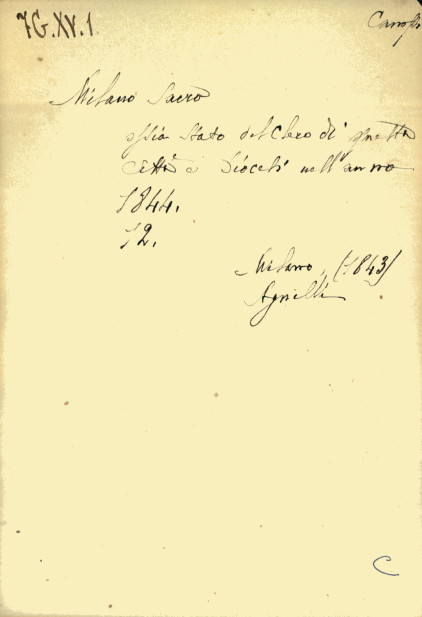 7G.XV.1.
Milano Sacro
ossia Stato del Clero di questa
Città e Diocesi nell'anno
1844.
12.
Milano, (1843)
Agnelli
C